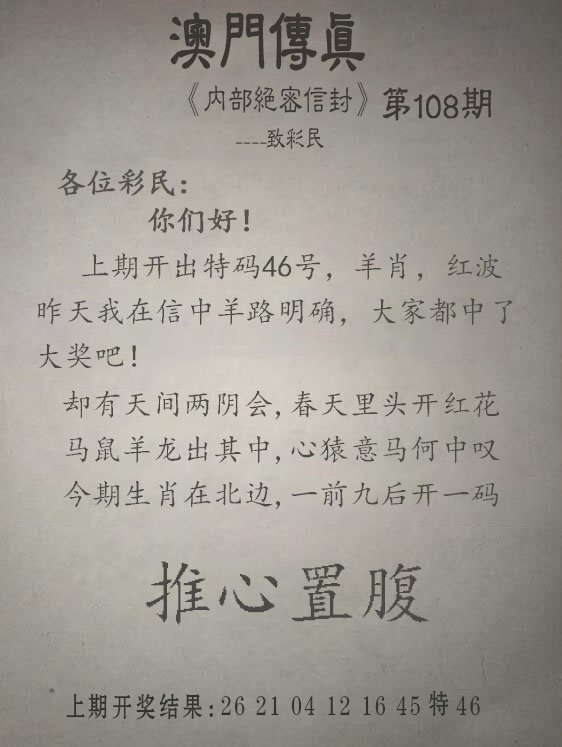 澳門傳真
《内部絕密信封》第108期
----致彩民
各位彩民：
你们好！
上期开出特码46号，羊肖，红波
昨天我在信中羊路明确，大家都中了
大奖吧！
却有天间两阴会,春天里头开红花
马鼠羊龙出其中,心猿意马何中叹
今期生肖在北边,一前九后开一码
推心置腹
上期开奖结果:26 21 04 12 16 45特46